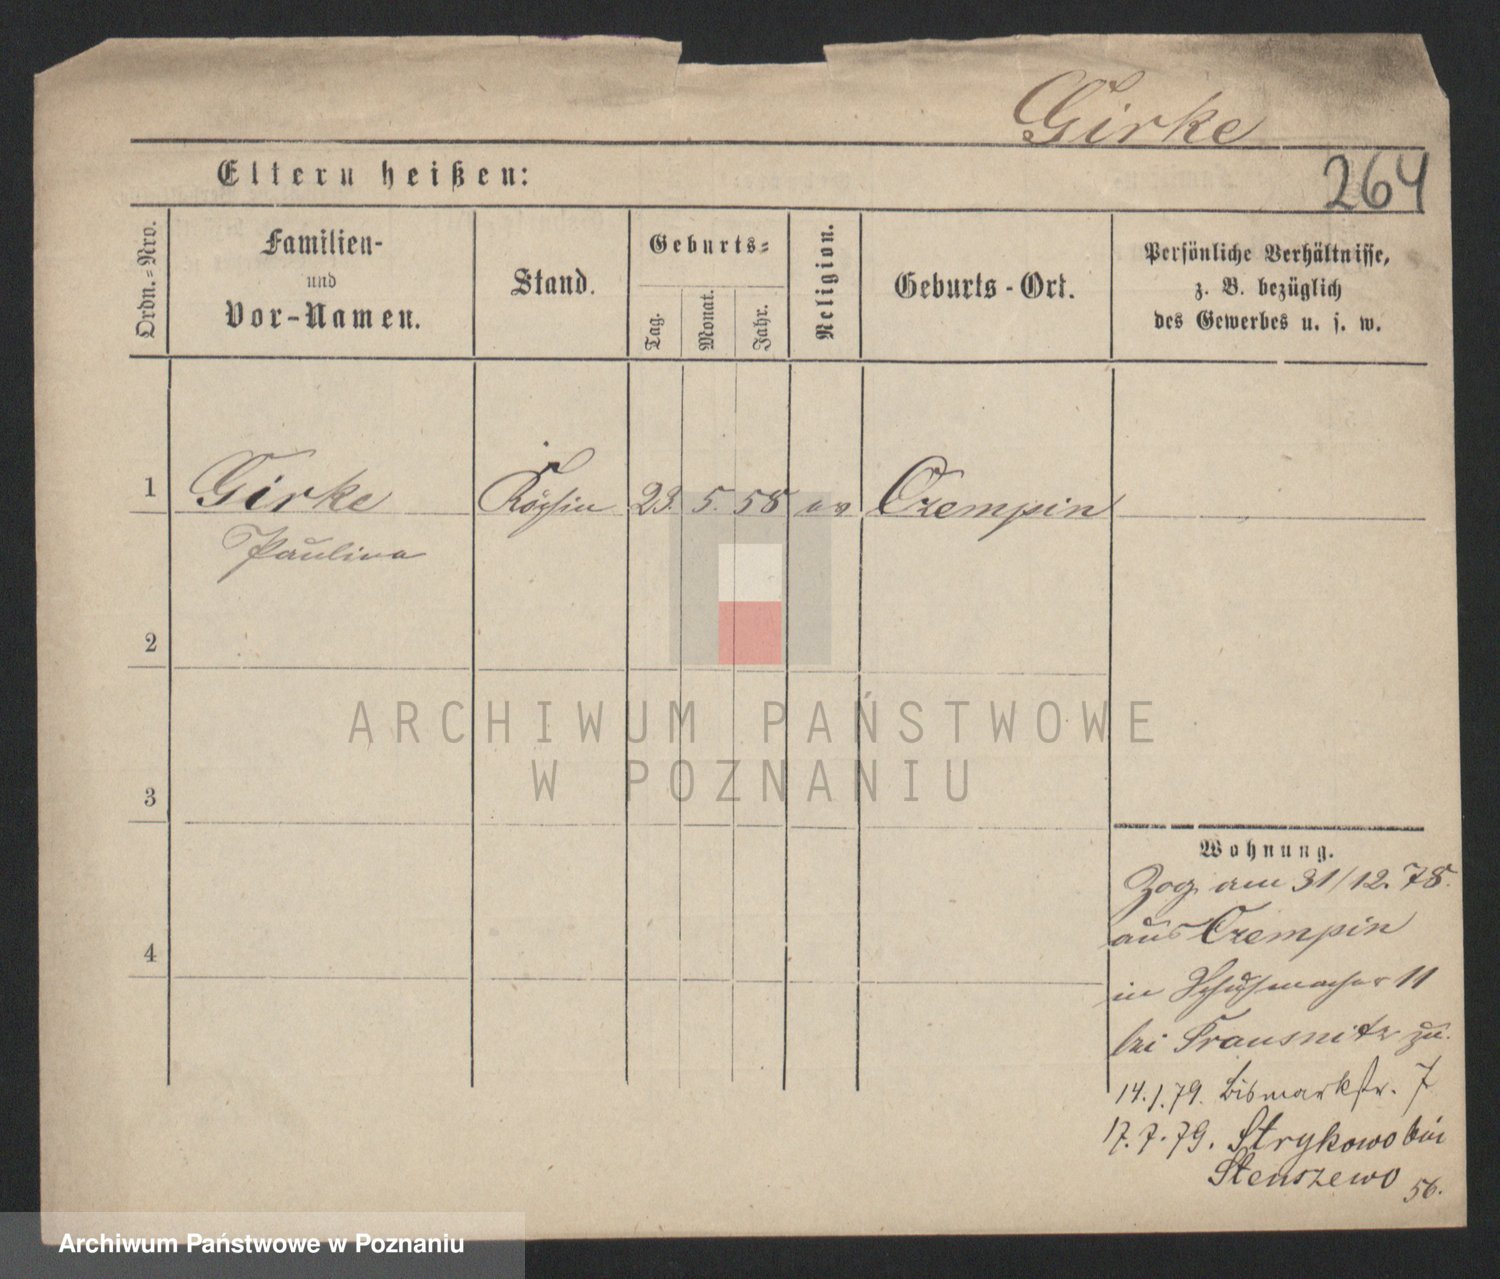 Girke
264
Eltern heißen:
Ordn.=Nro.
Familien-
und
Vor-Namen.
Stand.
Geburts=
Tag.
Monat.
Jahr.
Religion.
Geburts-Ort.
Persönliche Verhältnisse,
z. B. bezüglich
des Gewerbes u. s. w.
1
Girke
Köchin
23. 5. 58
ev
Czempin
Paulina
2
ARCHIWUM PAŃSTWOWE
W POZNANIU
3
Wohnung.
Zog am 31/12. 78.
aus Czempin
4
in Schuhmacher 11
bei Krausnitz zu.
14.1.79. Bismarkstr. 7
17.7.79. Strykowo bei
Stenszewo
56.
Archiwum Państwowe w Poznaniu